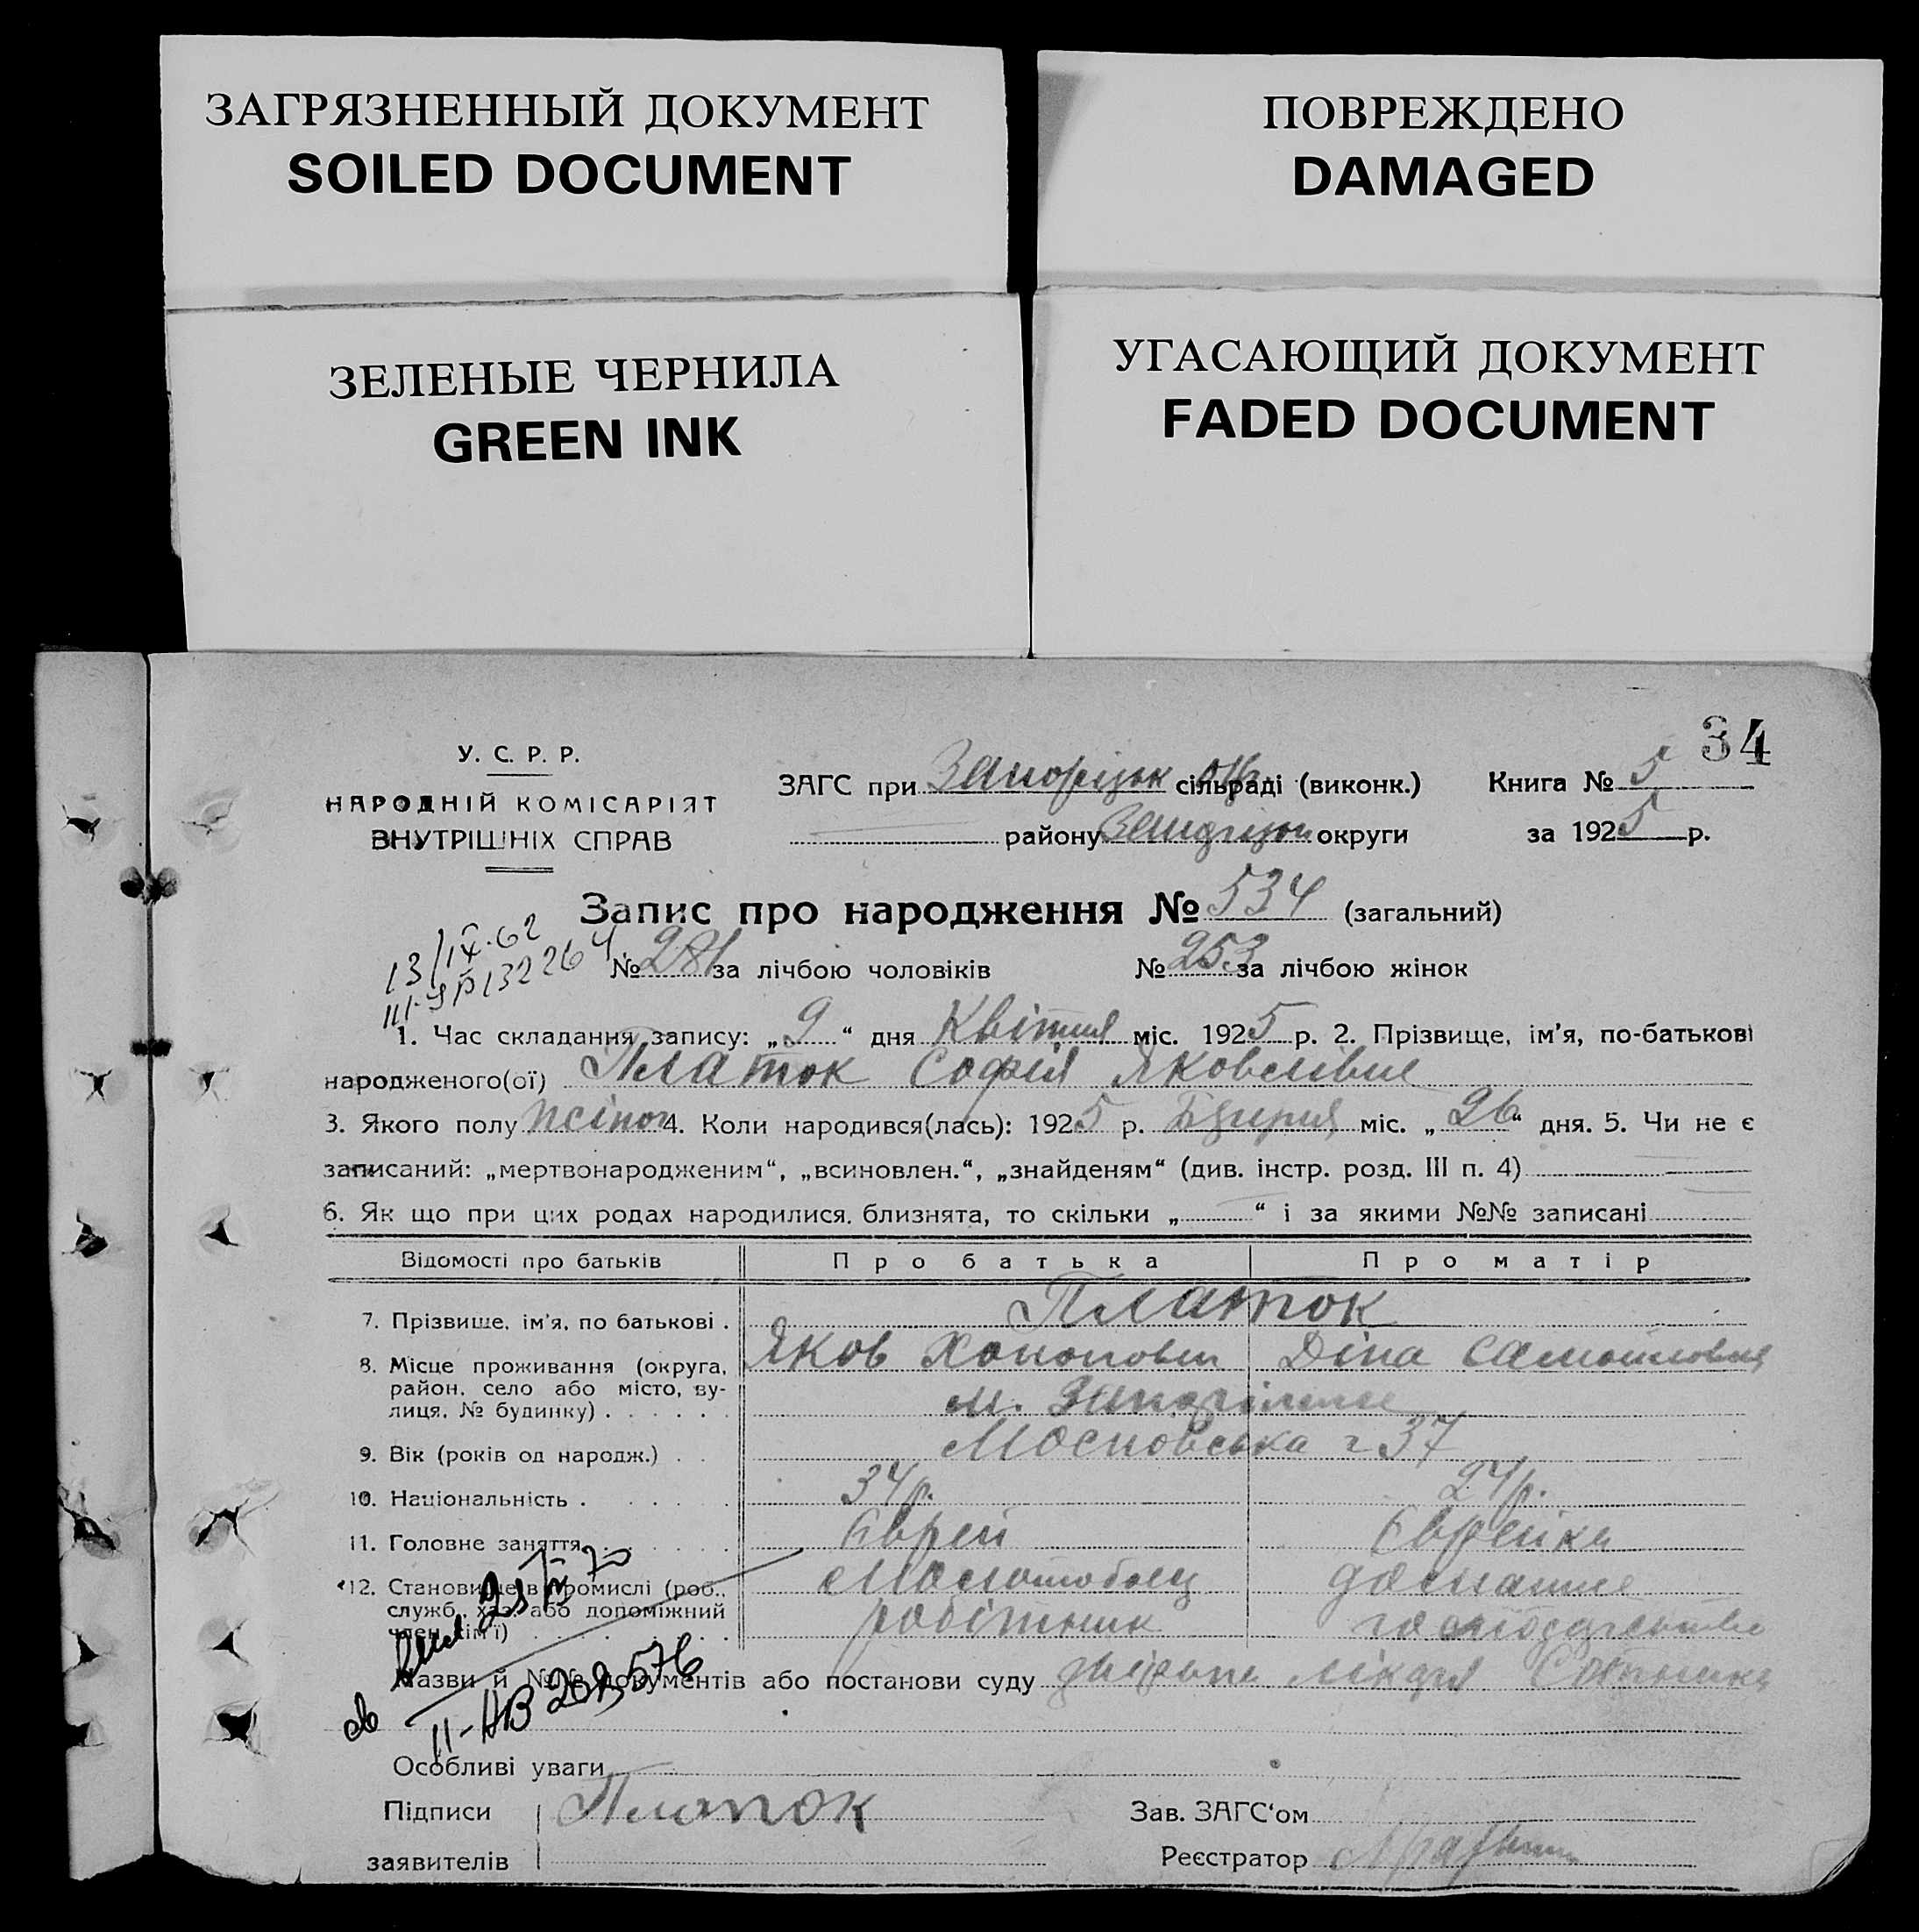 ЗАГРЯЗНЕННЫЙ ДОКУМЕНТ
SOILED DOCUMENT
ПОВРЕЖДЕНО
DAMAGED
ЗЕЛЕНЫЕ ЧЕРНИЛА
GREEN INK
УГАСАЮЩИЙ ДОКУМЕНТ
FADED DOCUMENT
34
У. С. Р. Р.
НАРОДНІЙ КОМІСАРІЯТ
ВНУТРІШНІХ СПРАВ
ЗАГС при Запорізьк сільраді (виконк.)
району Запоріжж округи
Книга № 5
за 1925 р.
Запис про народження № 534 (загальний)
13/IX-62
№ 281 за лічбою чоловіків № 253 за лічбою жінок
1. Час складання запису: „9“ дня Квітня міс. 1925 р. 2. Прізвище, ім'я, по-батькові
народженого(ої) Платок Софія Яковлівна
3. Якого полу жіноч 4. Коли народився(лась): 1925 р. міс. „26“ дня. 5. Чи не є
записаний: „мертвонародженим“, „всиновлен.“, „знайденям“ (див. інстр. розд. III п. 4)
6. Як що при цих родах народилися. близнята, то скільки „ “ і за якими №№ записані
Відомості про батьків Про батька Про матір
7. Прізвище, ім'я, по батькові . Платок
Яков Діна Самойловна
8. Місце проживання (округа, район, село або місто, вулиця, № будинку) . . . . . . м. Запоріжжє
Московська 37
9. Вік (років од народж.) . . 34р. 24р.
10. Національність . . . . . . Єврей Єврейка
11. Головне заняття . . . . . . домашнє
12. Становище в промислі (роб., служб., хаз. або допоміжний член сім'ї) . . . . . . робітник
II-АВ 208576
Назви й №№ документів або постанови суду лікаря
Особливі уваги
Підписи
заявителів
Платок
Зав. ЗАГС'ом
Реєстратор